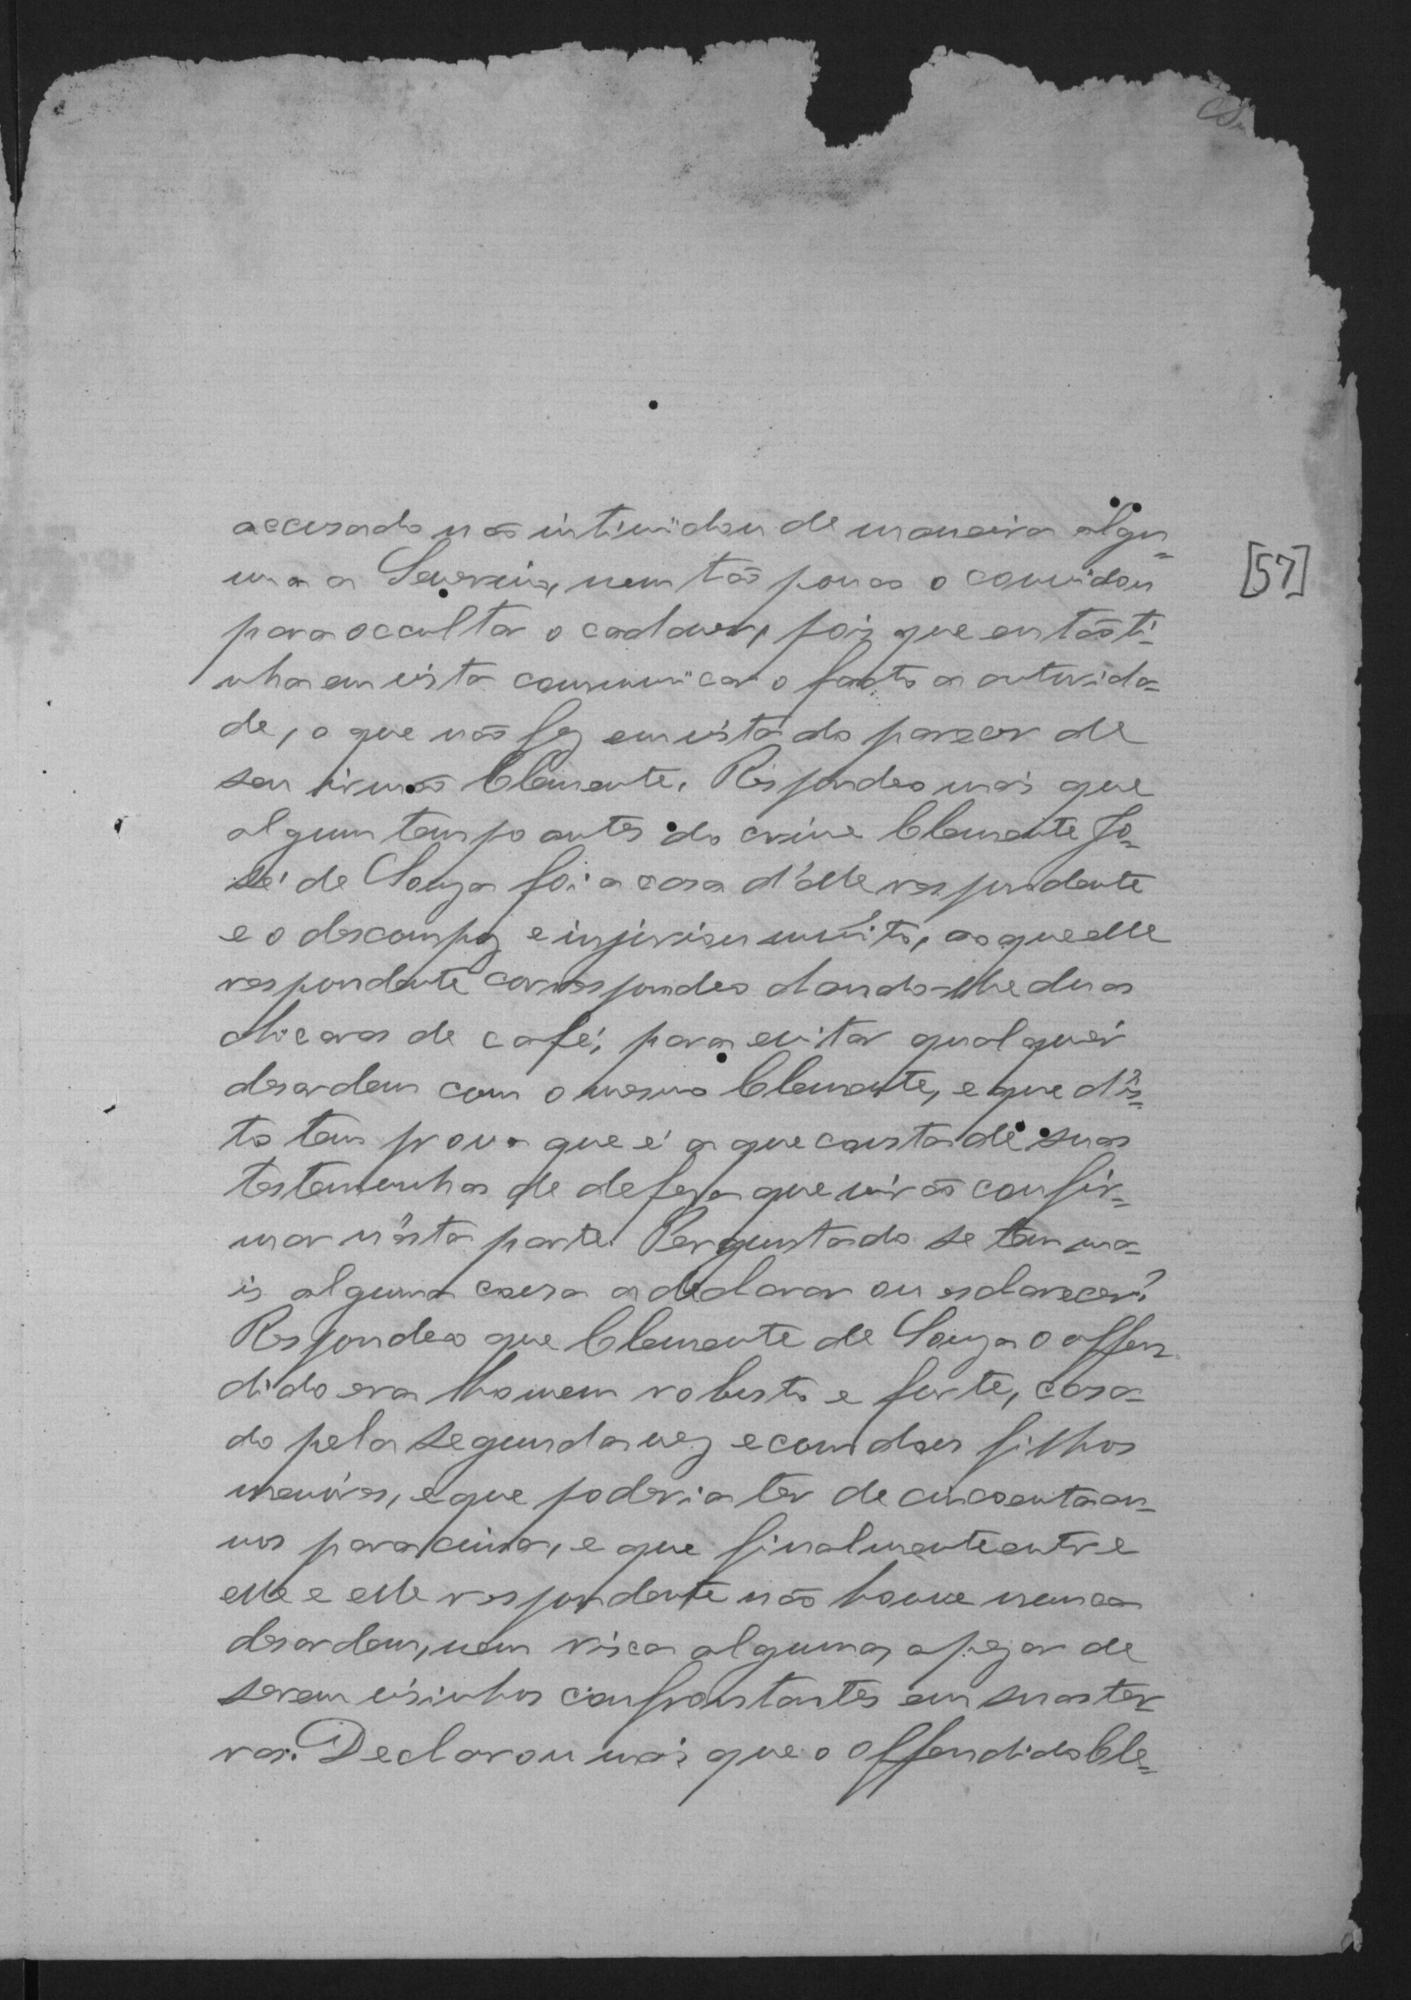 [57]
accusado não intimidou de maneira algu=
ma a Severino, nem tão pouco o convidou
para occultar o cadaver, pois que então ti-
nha em vista communicar o facto a autorida=
de, o que não fez em vista do parecer de
seu irmão Clemente. Respondeo mais que
algum tempo antes do crime Clemente Jo=
sé de Souza foi a casa d'elle respondente
e o descompoz e injuriou muito, ao que elle
respondente correspondeo dando-lhe duas
chicaras de café, para evitar qualquer
desordem com o mesmo Clemente, e que d'is=
to tem prova que é a que consta de suas
testemunhas de defesa que virão confir=
mar n'esta parte. Perguntado se tem ma=
is alguma cousa a declarar ou esclarecer?
Respondeo que Clemente de Souza o offen=
dido era homem robusto e forte, casa=
do pela segunda vez e com dous filhos
menóres, e que poderia ter de cincoenta an=
nos para cima, e que finalmente entre
elle e elle respondente não houve nunca
desordem, nem rixa alguma, apezar de
serem visinhos confrontantes em suas ter=
ras. Declarou mais que o offendido Cle=